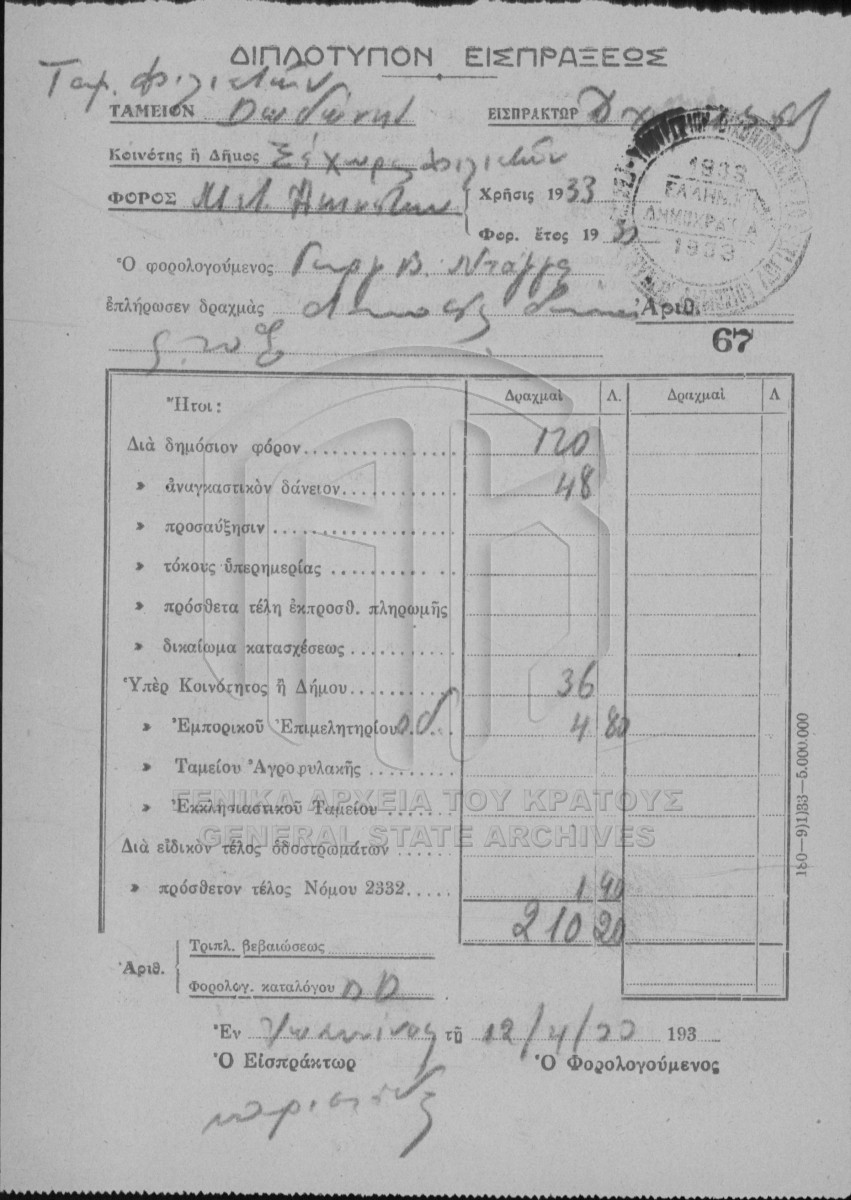 ΔΙΠΛΟΤΥΠΟΝ ΕΙΣΠΡΑΞΕΩΣ
Ταμ. Φιλιατών
ΤΑΜΕΙΟΝ Δωδώνης ΕΙΣΠΡΑΚΤΩΡ
Κοινότης ἢ Δῆμος Φιλιατών
ΦΟΡΟΣ Χρῆσις 1933
Φορ. ἔτος 19
1933
ΕΛΛΗΝΙΚΗ
ΔΗΜΟΚΡΑΤΙΑ
1933
Ὁ φορολογούμενος Γεωργ. Β.
ἐπλήρωσεν δραχμὰς Διακοσίας δέκα Ἀριθ.
67
Ἤτοι: Δραχμαὶ Λ. Δραχμαὶ Λ
Διὰ δημόσιον φόρον 120
» ἀναγκαστικὸν δάνειον 48
» προσαύξησιν
» τόκους ὑπερημερίας
» πρόσθετα τέλη ἐκπροσθ. πληρωμῆς
» δικαίωμα κατασχέσεως
Ὑπὲρ Κοινότητος ἢ Δήμου 36
» Ἐμπορικοῦ Ἐπιμελητηρίου 4 80
» Ταμείου Ἀγροφυλακῆς
» Ἐκκλησιαστικοῦ Ταμείου
ΓΕΝΙΚΑ ΑΡΧΕΙΑ ΤΟΥ ΚΡΑΤΟΥΣ
GENERAL STATE ARCHIVES
Διὰ εἰδικὸν τέλος ὁδοστρωμάτων
» πρόσθετον τέλος Νόμου 2332 1 40
210 20
180—9)1)33—5.000.000
Ἀριθ. Τριπλ. βεβαιώσεως
Φορολογ. καταλόγου
Ἐν Ἰωαννίνοις τῇ 12/4/33 193
Ὁ Εἰσπράκτωρ Ὁ Φορολογούμενος